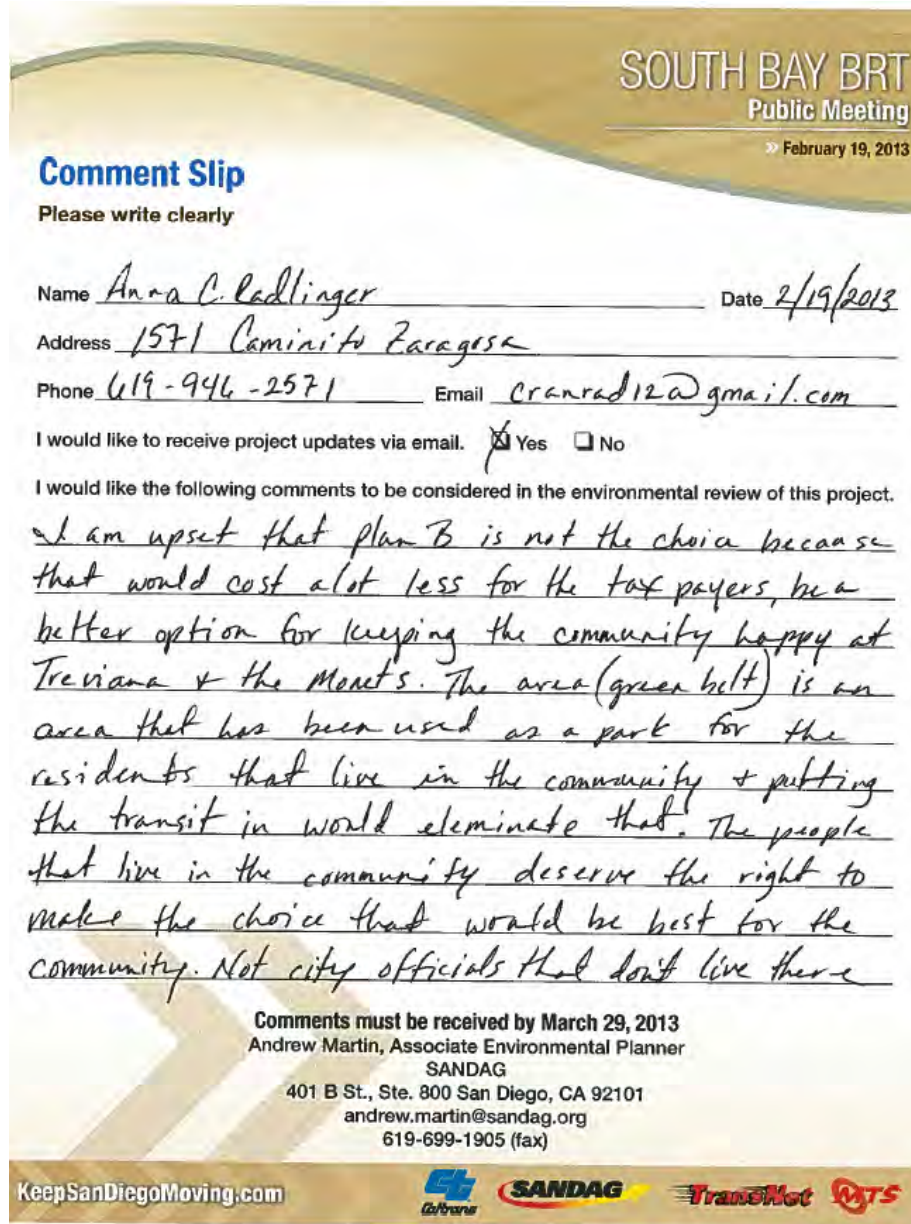 SOUTH BAY BRT
Public Meeting
» February 19, 2013
Comment Slip
Please write clearly
Name Anna C. Radlinger Date 2/19/2013
Address 1571 Caminito Zaragosa
Phone 619-946-2571 Email cranrad12@gmail.com
I would like to receive project updates via email. ☒ Yes ☐ No
I would like the following comments to be considered in the environmental review of this project.
I am upset that plan B is not the choice because
that would cost alot less for the tax payers, be a
better option for keeping the community happy at
Treviana & the Monets. The area (green belt) is an
area that has been used as a park for the
residents that live in the community & putting
the transit in would eleminate that. The people
that live in the community deserve the right to
make the choice that would be best for the
community. Not city officials that don't live there
Comments must be received by March 29, 2013
Andrew Martin, Associate Environmental Planner
SANDAG
401 B St., Ste. 800 San Diego, CA 92101
andrew.martin@sandag.org
619-699-1905 (fax)
KeepSanDiegoMoving.com Caltrans SANDAG TransNet MTS